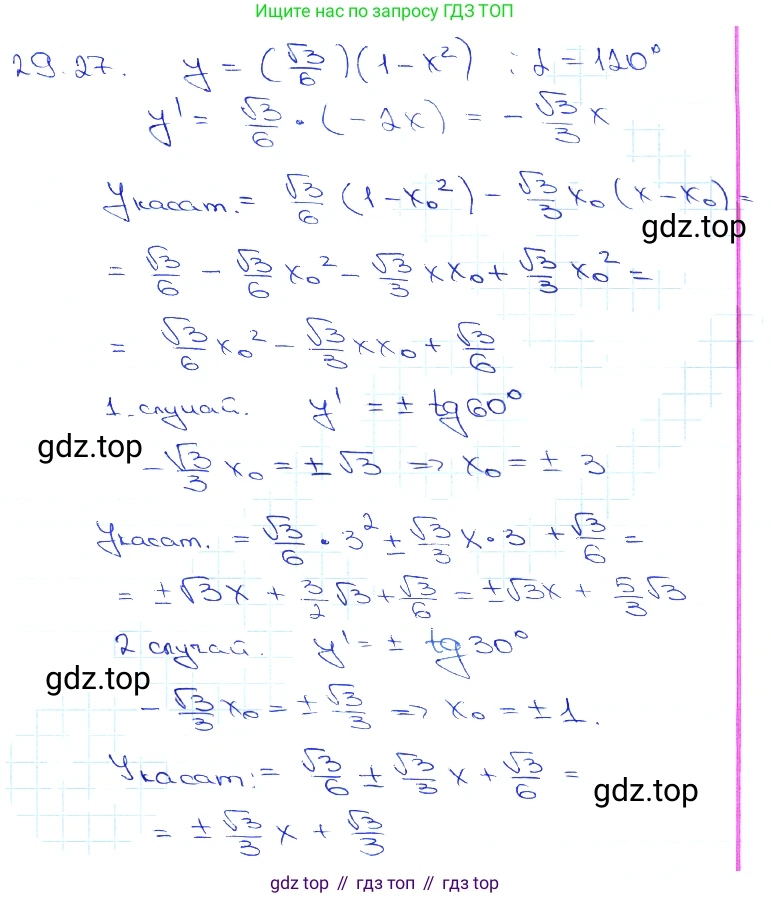 Ищите нас по запросу ГДЗ ТОП
29.27. y = (√3/6)(1-x²) ; α = 120°
y' = √3/6 · (-2x) = - √3/3 x
Yкасат. = √3/6 (1-x₀²) - √3/3 x₀ (x-x₀) =
gdz.top
= √3/6 - √3/6 x₀² - √3/3 xx₀ + √3/3 x₀² =
= √3/6 x₀² - √3/3 xx₀ + √3/6
1. случай. y' = ± tg 60°
gdz.top
- √3/3 x₀ = ± √3 => x₀ = ± 3
Yкасат. = √3/6 · 3² ± √3/3 x · 3 + √3/6 =
= ± √3x + 3/2 √3 + √3/6 = ± √3x + 5/3 √3
2 случай. y' = ± tg 30°
gdz.top
- √3/3 x₀ = ± √3/3 => x₀ = ± 1.
Yкасат: = √3/6 ± √3/3 x + √3/6 =
gdz.top
= ± √3/3 x + √3/3
gdz top // гдз топ // гдз top